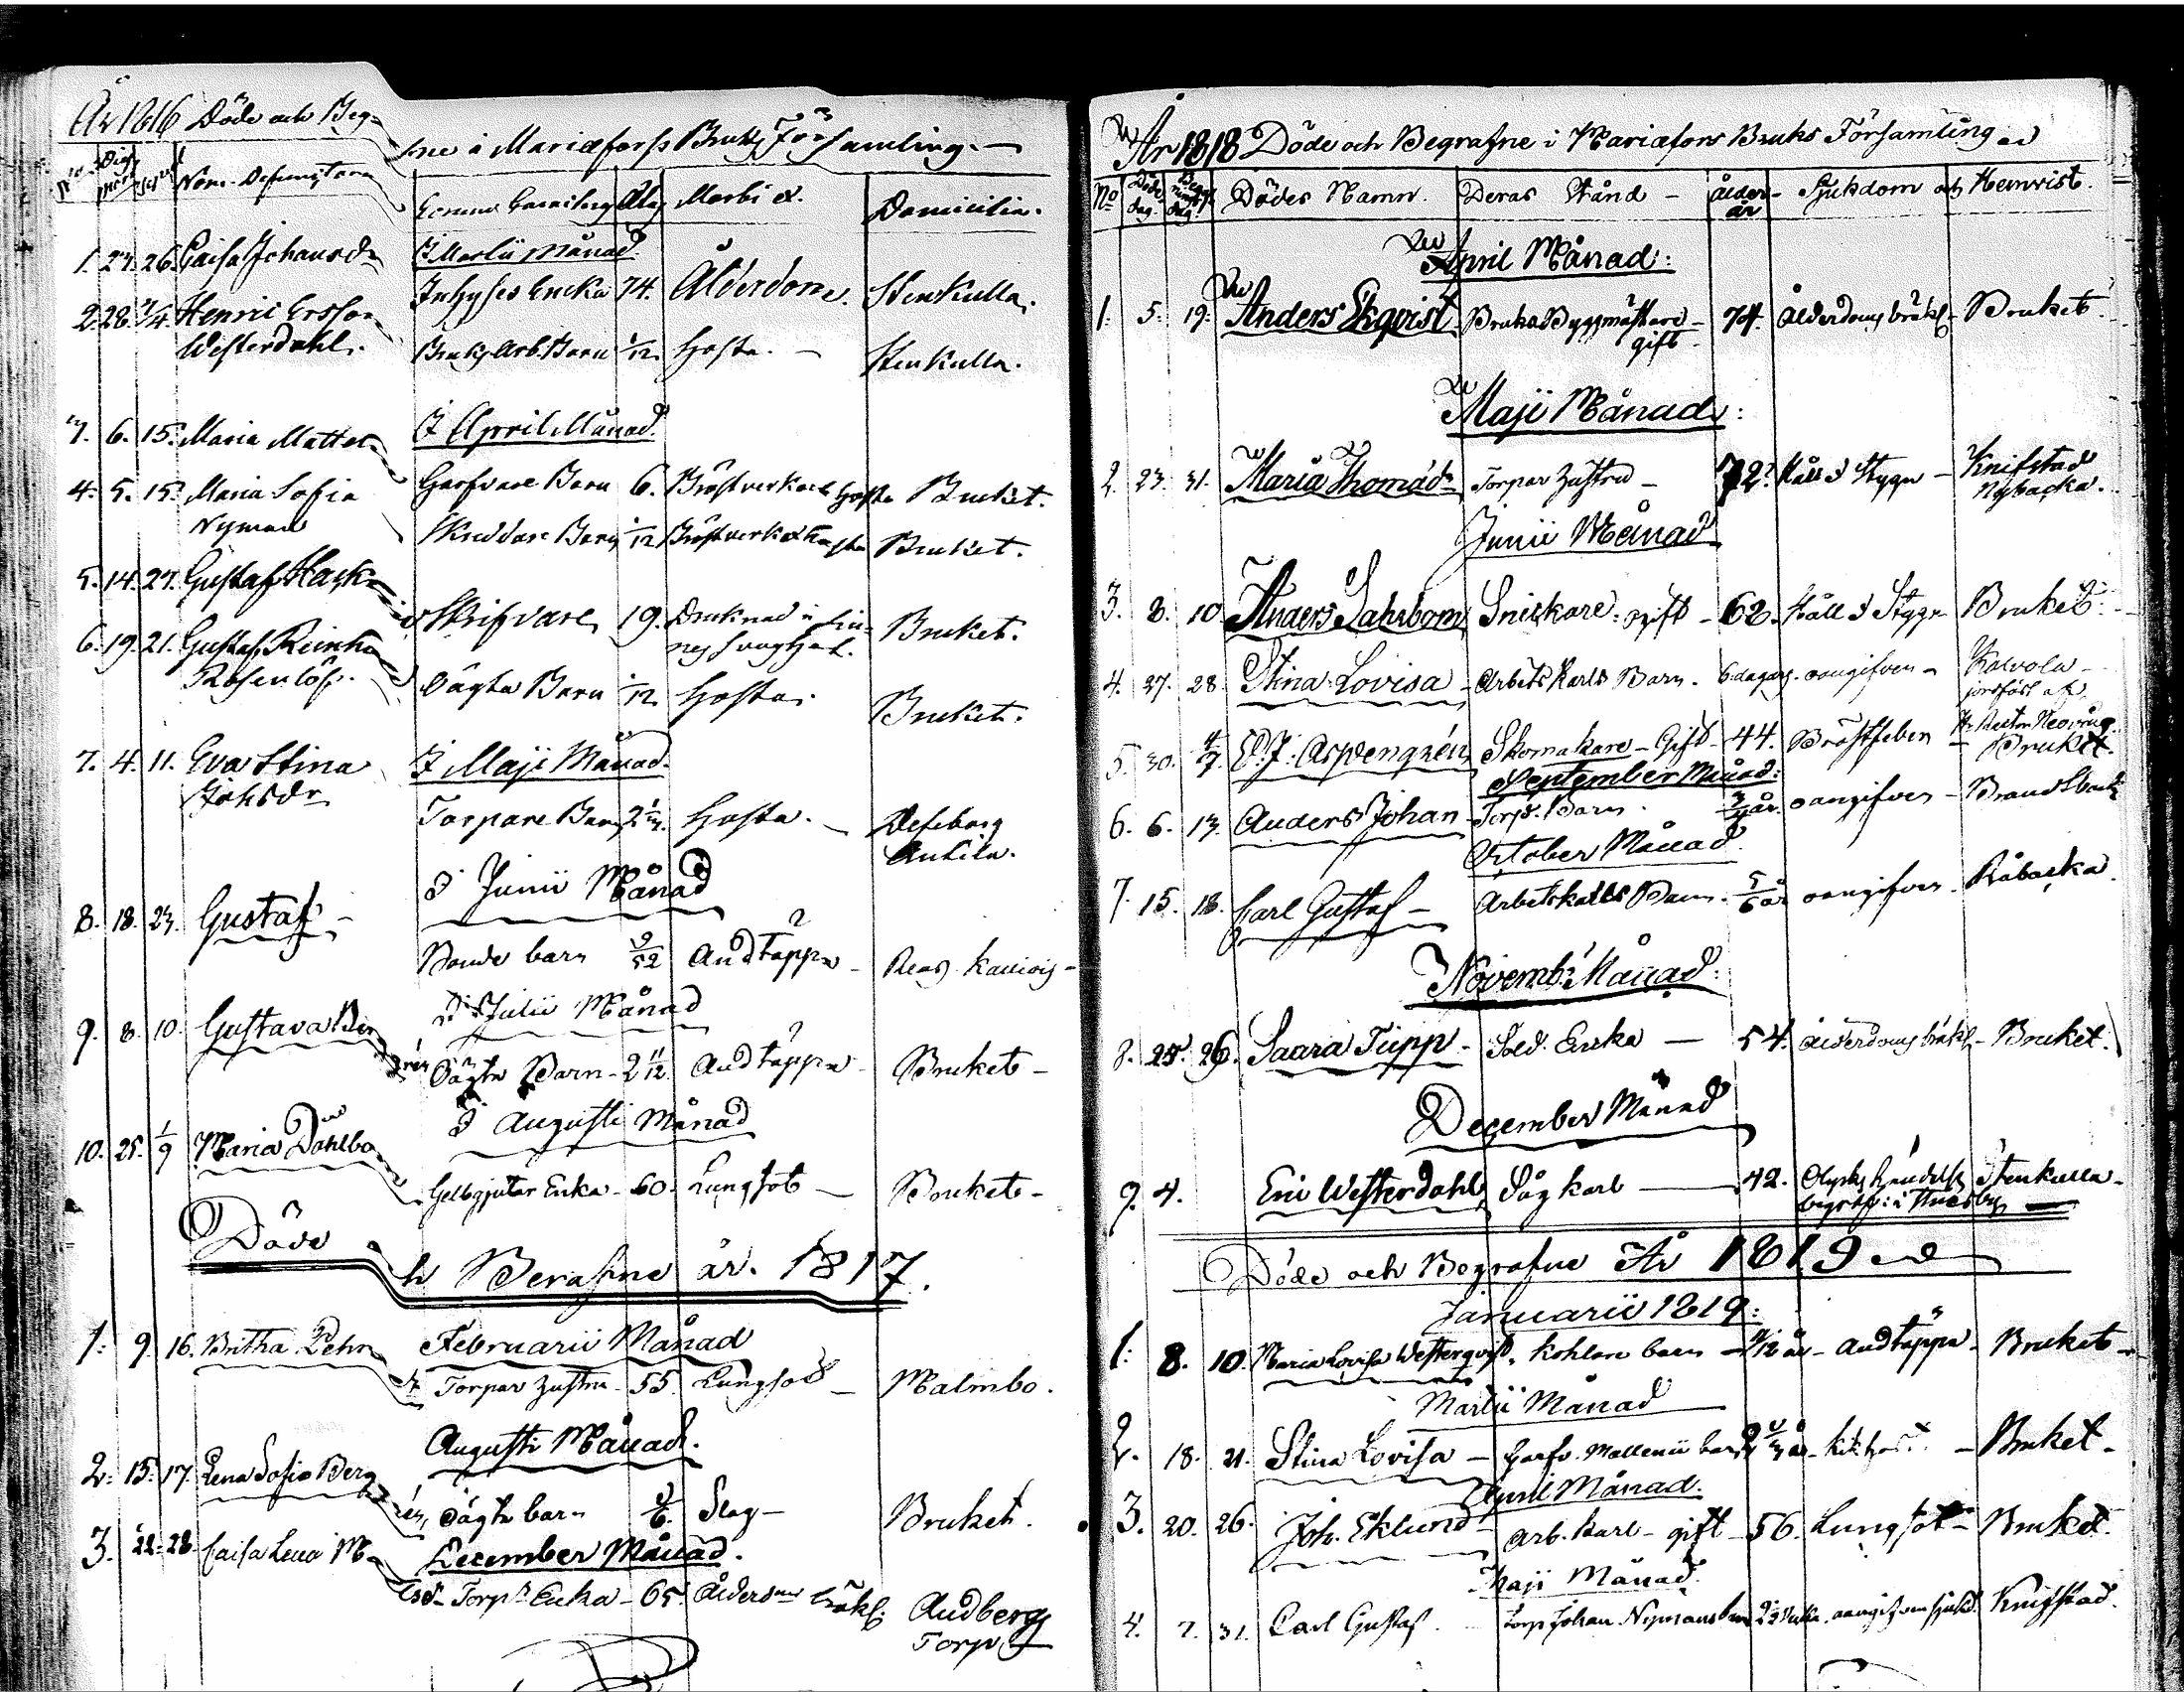 År 1816 Döde och Begrafne i Mariæfors Bruks Församling.
No Nom. Defunctorum Morbi Domicilia.
I Martii Månad.
1. 27. 26. Caisa Johansdr Inhyses Encka 74. Ålderdom. Stenkulla.
2. 28. 7/4. Henric Ersson
Westerdahl. Bruks Arb. Barn 1/12 Hosta. Stenkulla.
I April Månad.
3. 6. 15. Maria Garfvare Barn 6. Bröstverk och Hosta Bruket.
4. 5. 15. Maria Sofia
Nyman Skreddare Barn /12 Bröstverk & Hosta Bruket.
5. 14. 27. Gustaf Skrifvare 19. Druknad i Bruket.
6. 19. 21. Gustaf
Rosenlöf. Oägta Barn /12 Hosta. Bruket.
I Maji Månad.
7. 4. 11. Eva Stina
Johsdr Torpare Barn Hosta.
Antila.
I Junii Månad
8. 18. 23. Gustaf Bonde barn 9/52 Andtäppa
I Julii Månad
9. 8. 10. Gustava Bergrén Oägta Barn 2 11/12 Andtäppa Bruket
I Augusti Månad
10. 25. 1/9 Maria Dahlbom Gelbgjutar Enka 60. Lungsot Bruket
Döde och Berafne år. 1817.
Februarii Månad
1. 9. 16. Britha Pehrsdr Torpar hustru 55. Lungsot Malmbo.
Augusti Månad.
2. 15. 17. Lena Sofia Bergrén, Oägta barn Slag Bruket.
December Månad.
3. 22. 28. Caisa Lena Torp. Enka 65. Ålderdoms bräkl. Audberg
Torp
År 1818 Döde och Begrafne i Mariæfors Bruks Församling
No Döds dag. Begr. dag Dödes Namn. Deras Stånd Ålder år Sjukdom och Hemvist.
April Månad:
1. 5. 19. Anders Ekqvist Bruks Byggmästare 74. Ålderdoms bräkl. Bruket.
gift
Maji Månad:
2. 23. 31. Maria Thomasdr Torpar hustru 72. Håll & Stygn Knifstad
Nybacka.
Junii Månad
3. 8. 10. Anders Sahrbom Snickare. gift 62. Håll & Stygn Bruket.
4. 27. 28. Stina Lovisa Arbets Karls Barn. 6 dagar. oangifven Kalvola
5. 30. 4/7 E. J. Aspengrén Skomakare Gift 44. Bröstfeber Bruket.
September Månad:
6. 6. 13. Anders Johan Torp. Barn oangifven
October Månad.
7. 15. 18. Carl Gustaf Arbetskarls Barn. 5/6 år oangifven Råbacka.
Novemb. Månad:
8. 25. 26. Saara Tupp Sold. Enka 54. Ålderdoms bräkl. Bruket.
December Månad
9. 4. Eric Westerdahl Såg karl 42. Olycks händelse Stenkulla
Döde och Begrafne År 1819
Januarii 1819:
1. 8. 10. Maria Lovisa Westerqvist, kohlare barn /12 år Andtäppa Bruket
Martii Månad
2. 18. 21. Stina Lovisa Garfv. Mollenii barn kikhost Bruket
April Månad.
3. 20. 26. Joh. Eklund Arb. karl gift 56. Lungsot Bruket.
Maji Månad.
4. 7. 31. Carl Gustaf Torp. Johan Nymans barn oangifven sjukd. Knifstad.